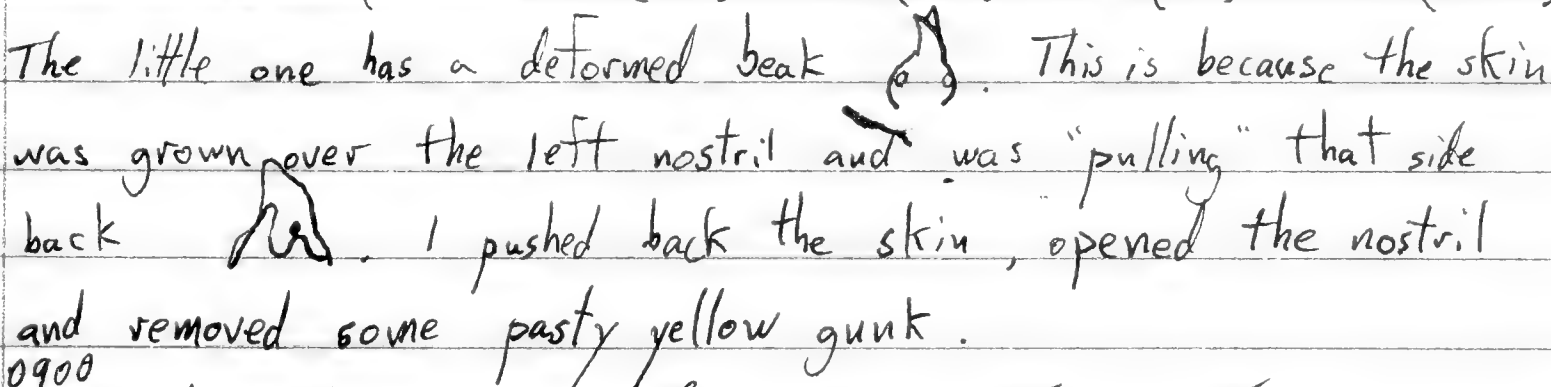 The little one has a deformed beak . This is because the skin
was grown over the left nostril and was "pulling" that side
back . I pushed back the skin, opened the nostril
and removed some pasty yellow gunk.
0900